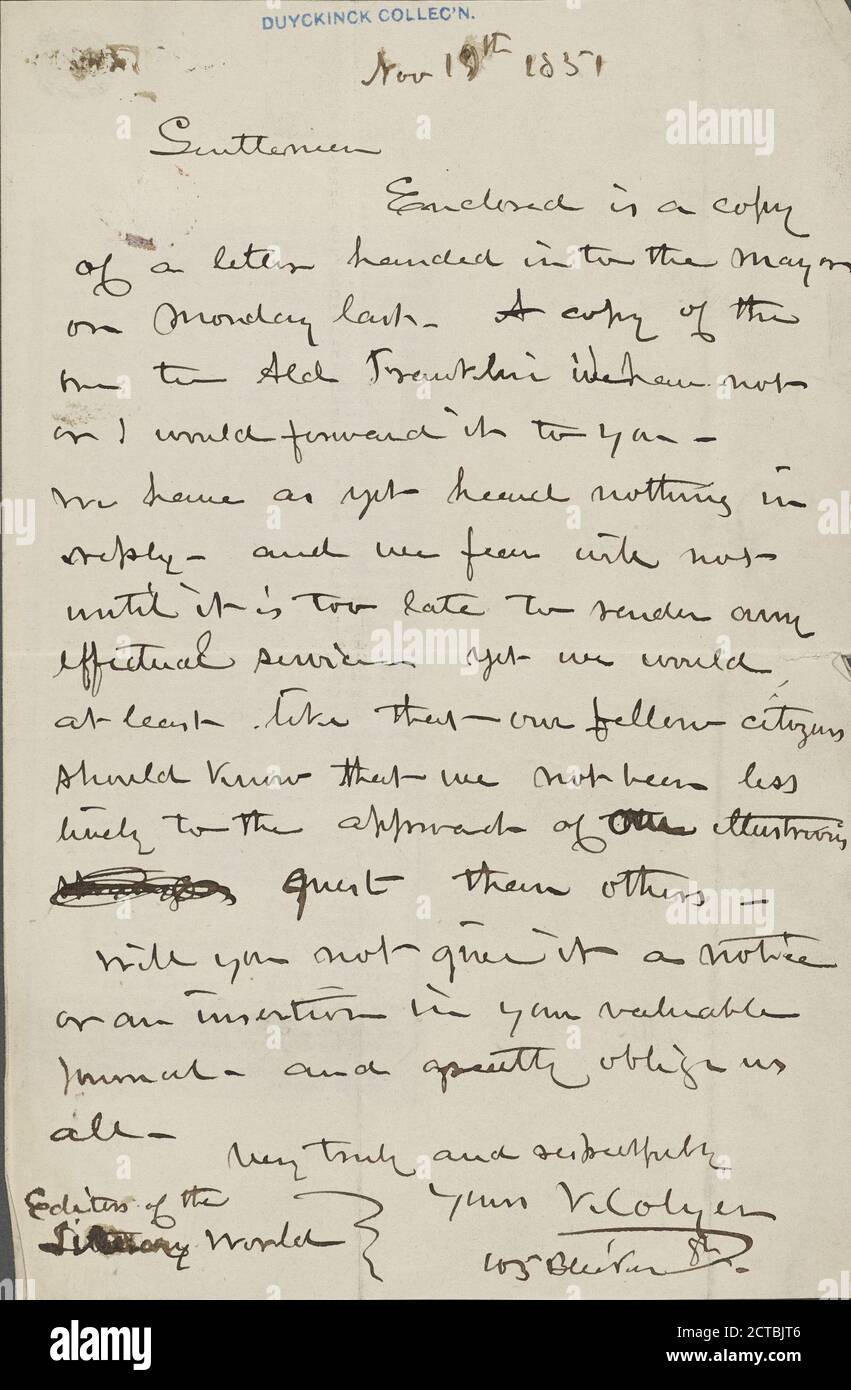 DUYCKINCK COLLEC'N.
Nov 19th 1851
Gentlemen
Enclosed is a copy
of a letter handed in to the Mayor
on Monday last - A copy of the
one to Ald Franklin we have not
or I would forward it to you -
we have as yet heard nothing in
reply - and we fear will not
until it is too late to render any
effectual service yet we would
at least like that our fellow citizens
should know that we not been less
lively to the approach of illustrious
guest than others -
will you not give it a notice
or an insertion in your valuable
journal - and greatly oblige us
all -
Very truly and respectfully
Yours V. Colyer
105 Bleecker St.
Editors of the
Literary World
alamy
Image ID: 2CTBJT6
www.alamy.com